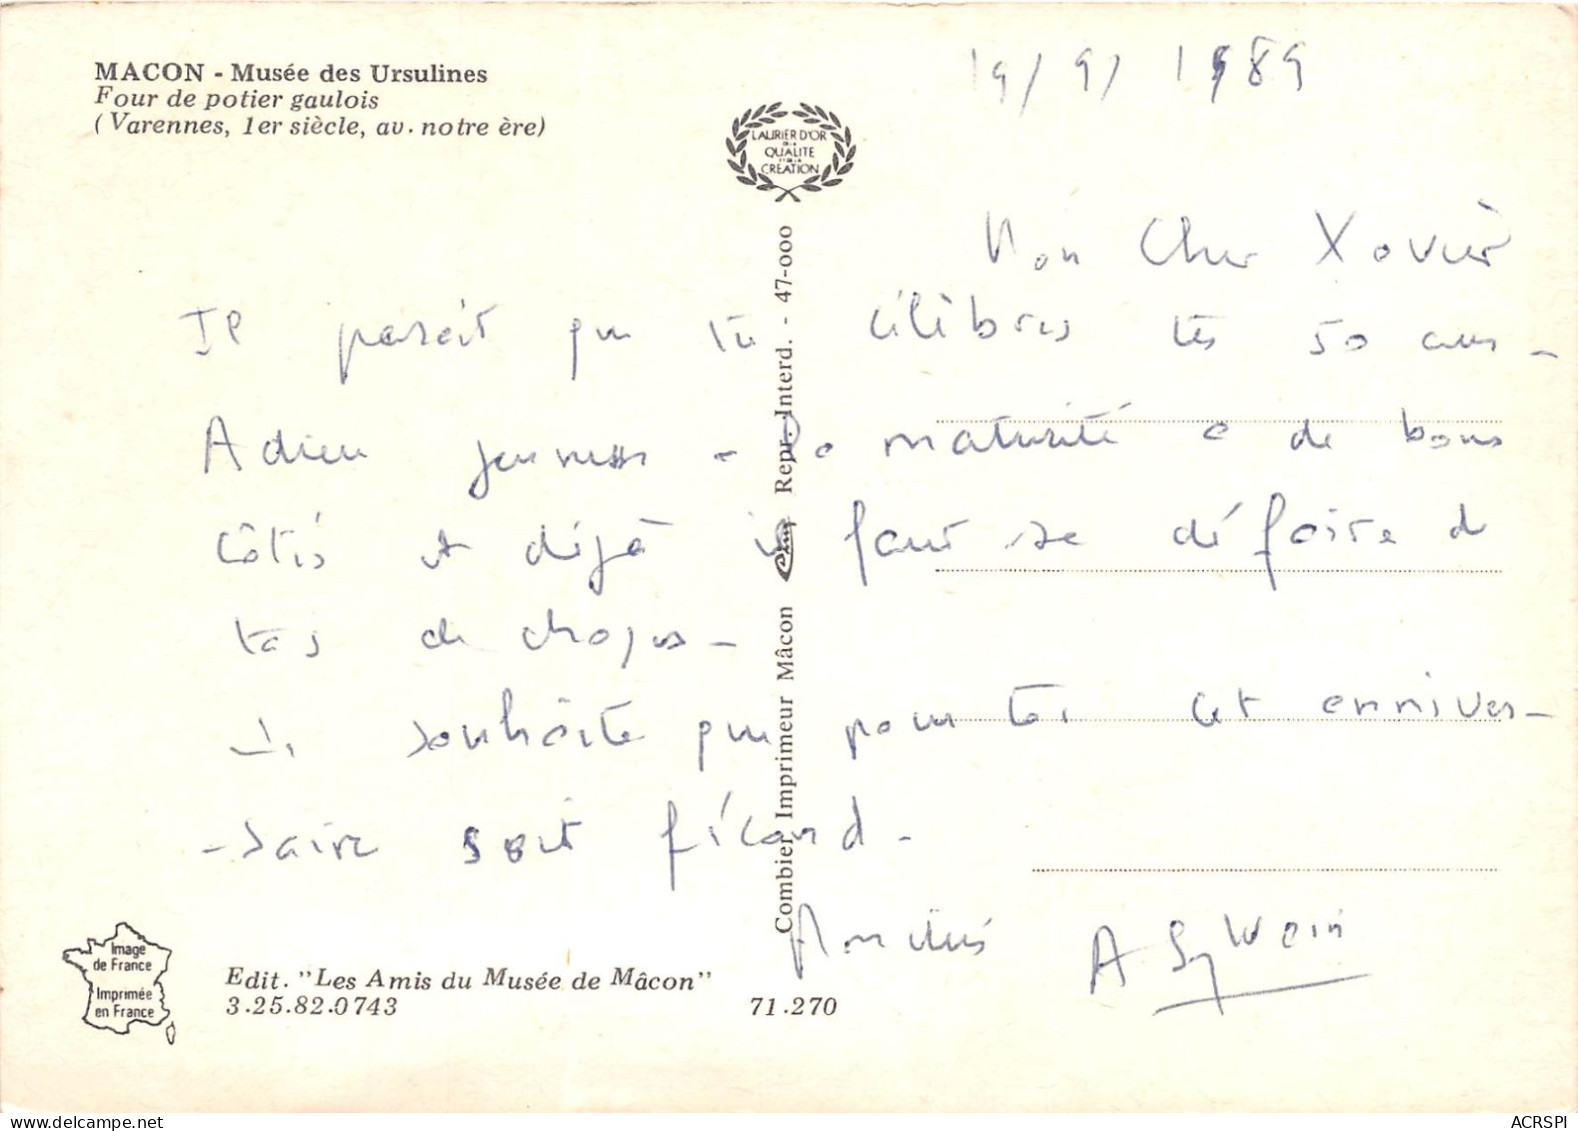 MACON - Musée des Ursulines
Four de potier gaulois
(Varennes, 1er siècle, av. notre ère)
19/9/ 1989
LAURIER D'OR
DE LA
QUALITE
ET DE LA
CREATION
Mon Cher Xavier
Il parait que tu célèbres tes 50 ans -
Adieu jeunesse - La maturité a de bons
côtés et déjà il faut se défaire de
tas de choses -
Je souhaite que pour toi cet anniver-
-saire soit fécond -
Amitiés A Sylvain
Combier Imprimeur Mâcon Cim Repr. Interd. - 47-000
Image
de France
Imprimée
en France
Edit. "Les Amis du Musée de Mâcon"
3.25.82.0743 71.270
www.delcampe.net ACRSPI